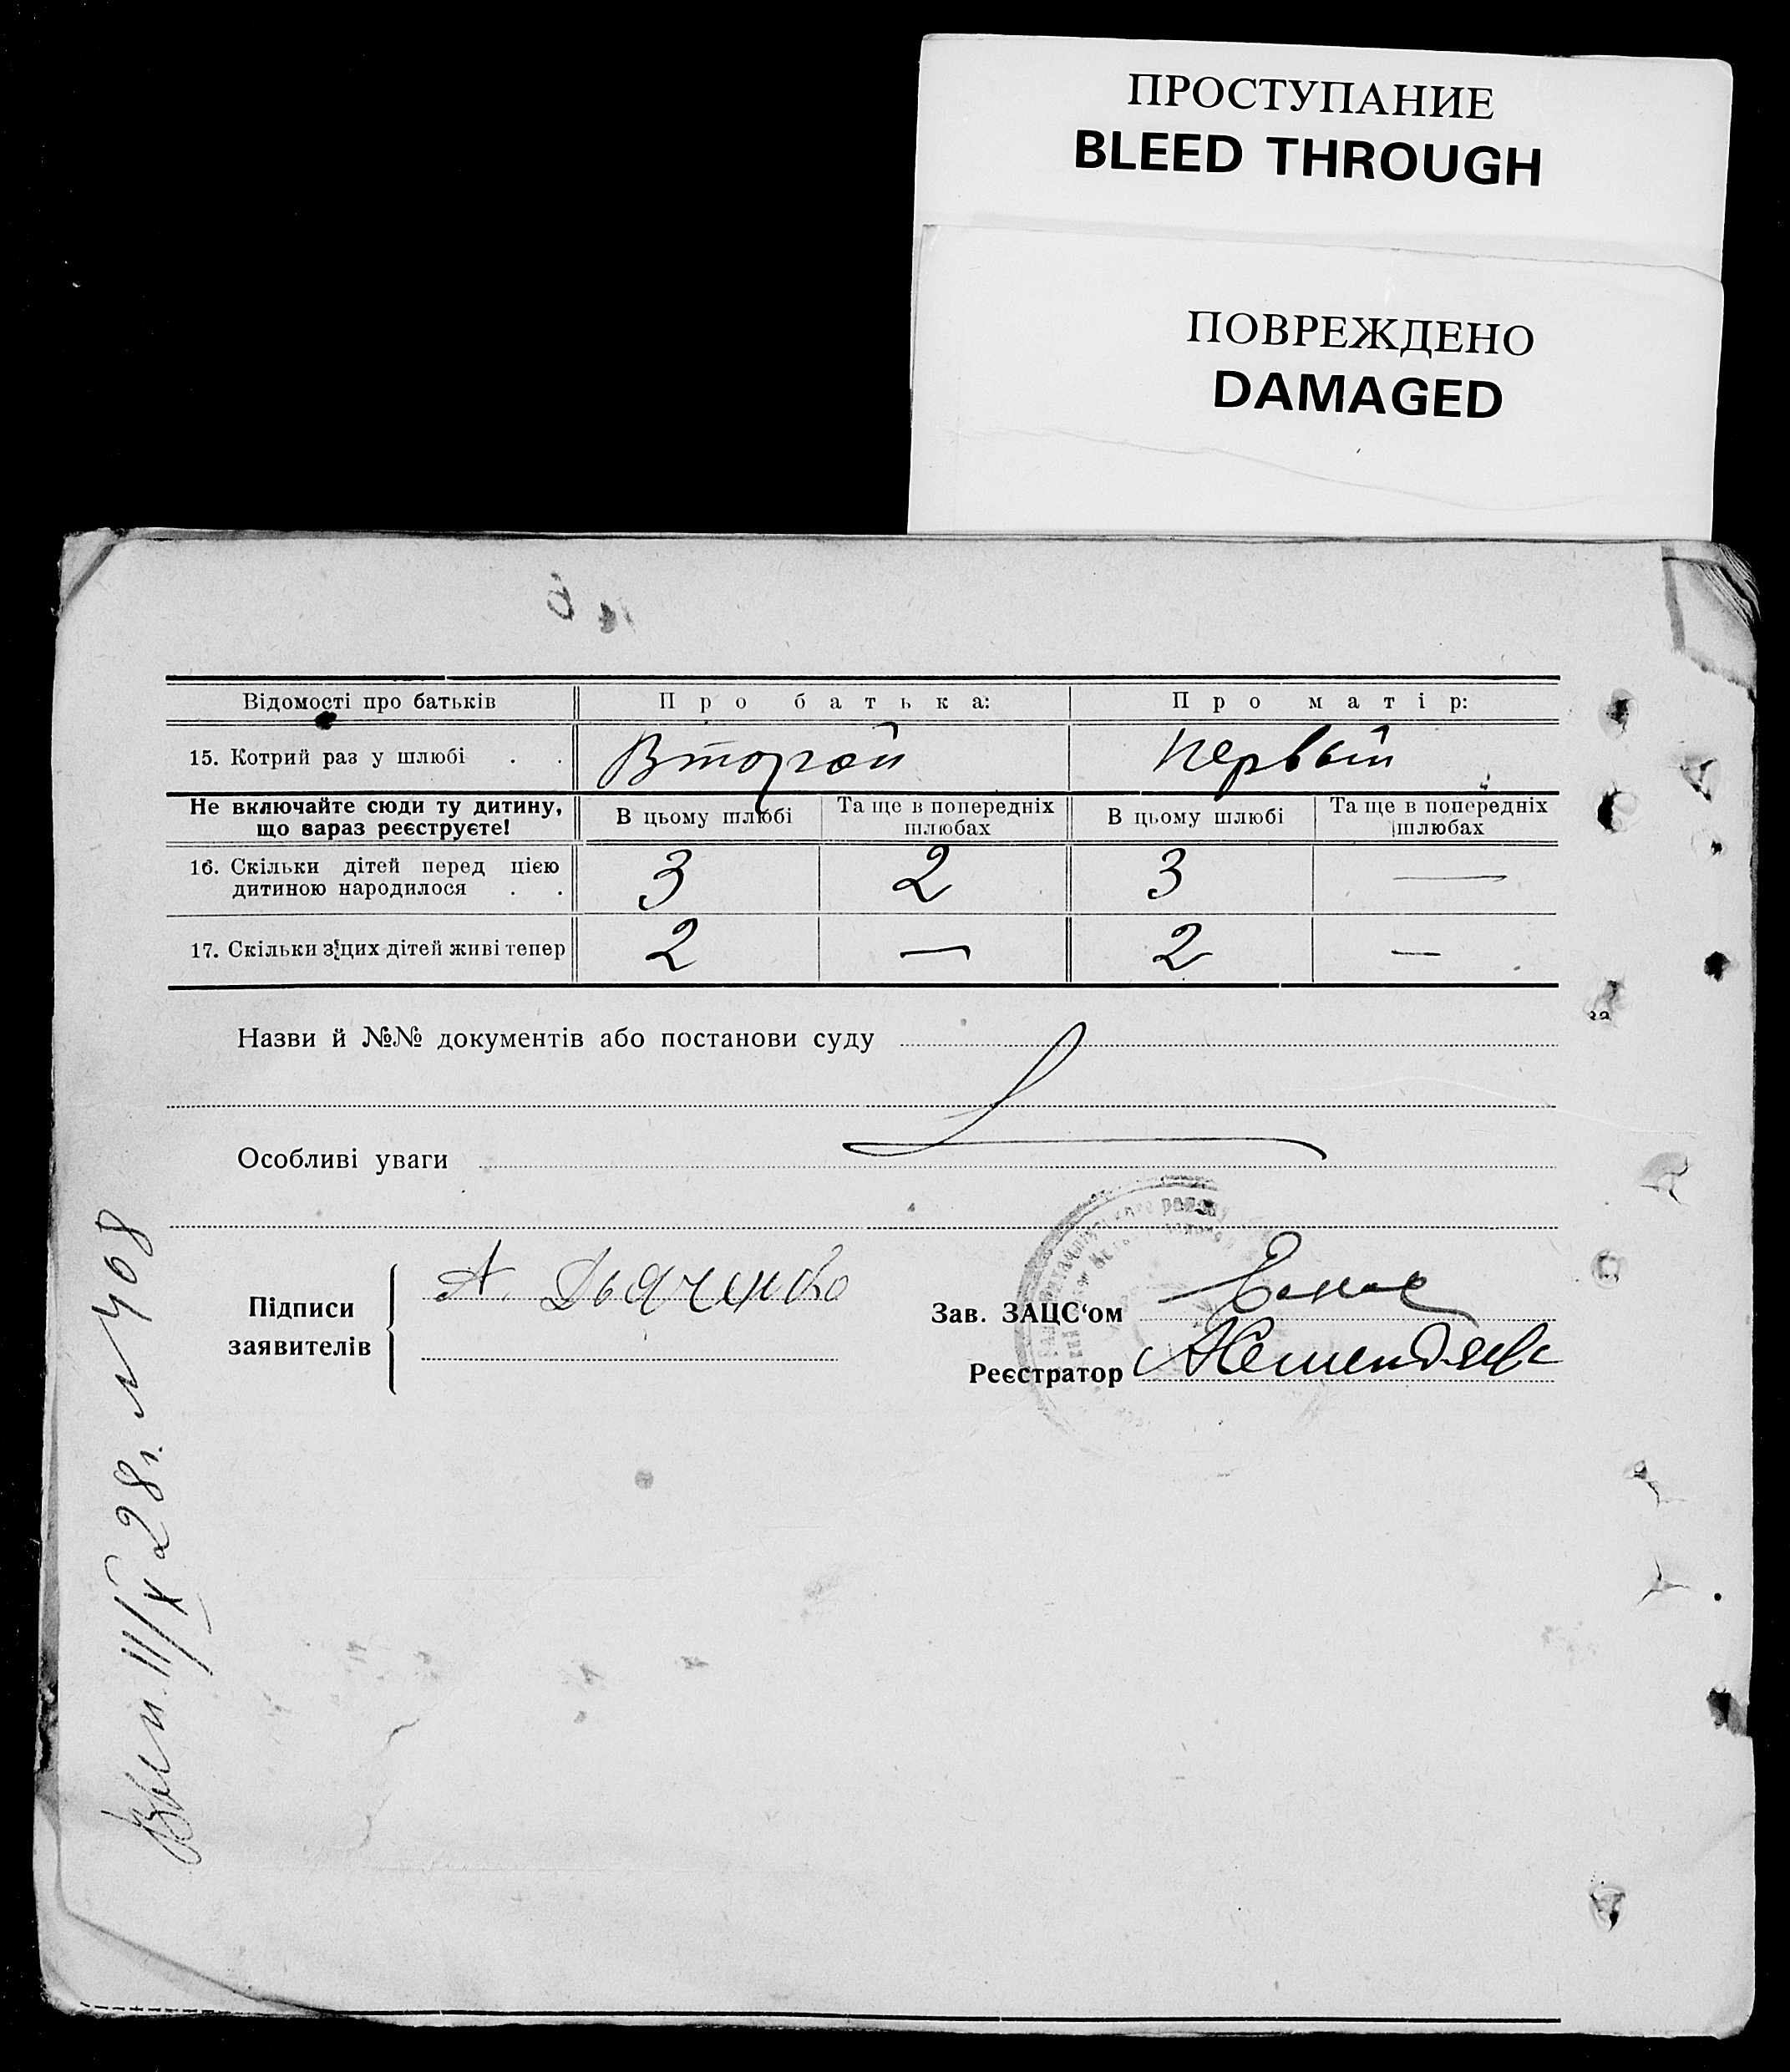 ПРОСТУПАНИЕ
BLEED THROUGH
ПОВРЕЖДЕНО
DAMAGED
Відомості про батьків Про батька: Про матір:
15. Котрий раз у шлюбі . . Второй Первый
Не включайте сюди ту дитину, що зараз реєструєте! В цьому шлюбі Та ще в попередніх шлюбах В цьому шлюбі Та ще в попередніх шлюбах
16. Скільки дітей перед цією дитиною народилося . . 3 2 3 —
17. Скільки з цих дітей живі тепер 2 — 2 —
Назви й №№ документів або постанови суду
Особливі уваги
Підписи заявителів А. Дьяченко
Зав. ЗАЦС‘ом
Реєстратор
11/X 28 г. № 408